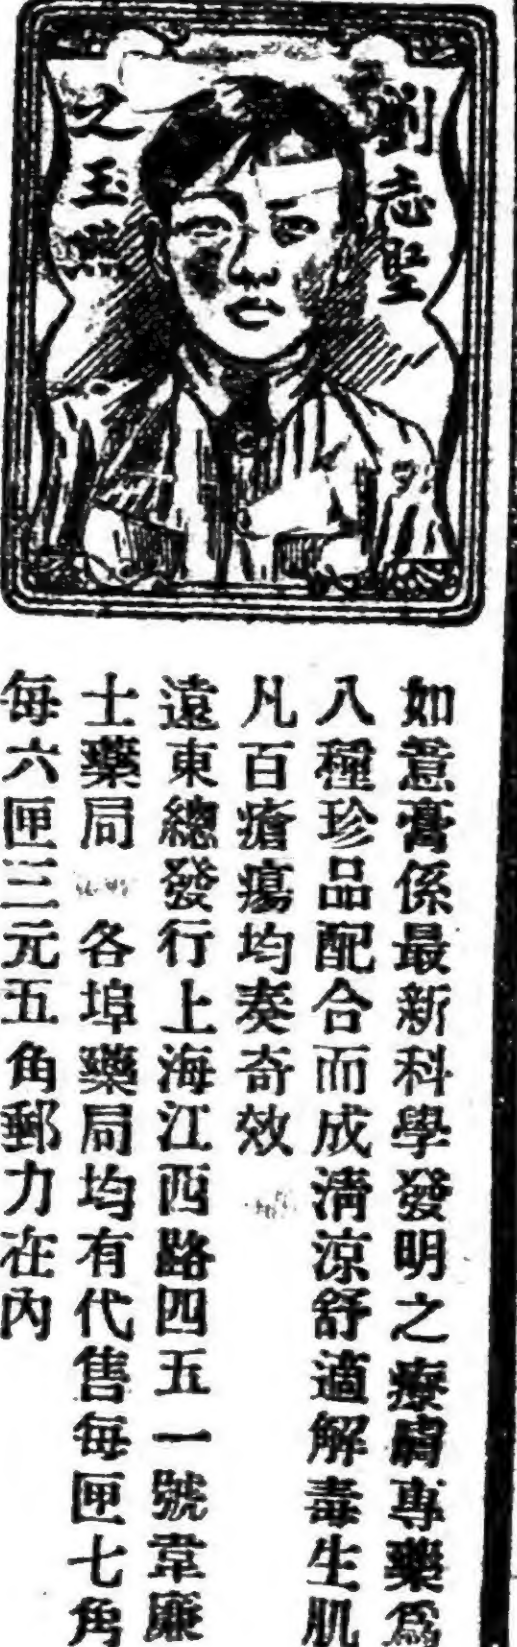 劉志堅
之玉照
如意膏係最新科學發明之療膚專藥爲
八種珍品配合而成清涼舒適解毒生肌
凡百瘡瘍均奏奇效
遠東總發行上海江西路四五一號韋廉
士藥局 各埠藥局均有代售每匣七角
每六匣三元五角郵力在內